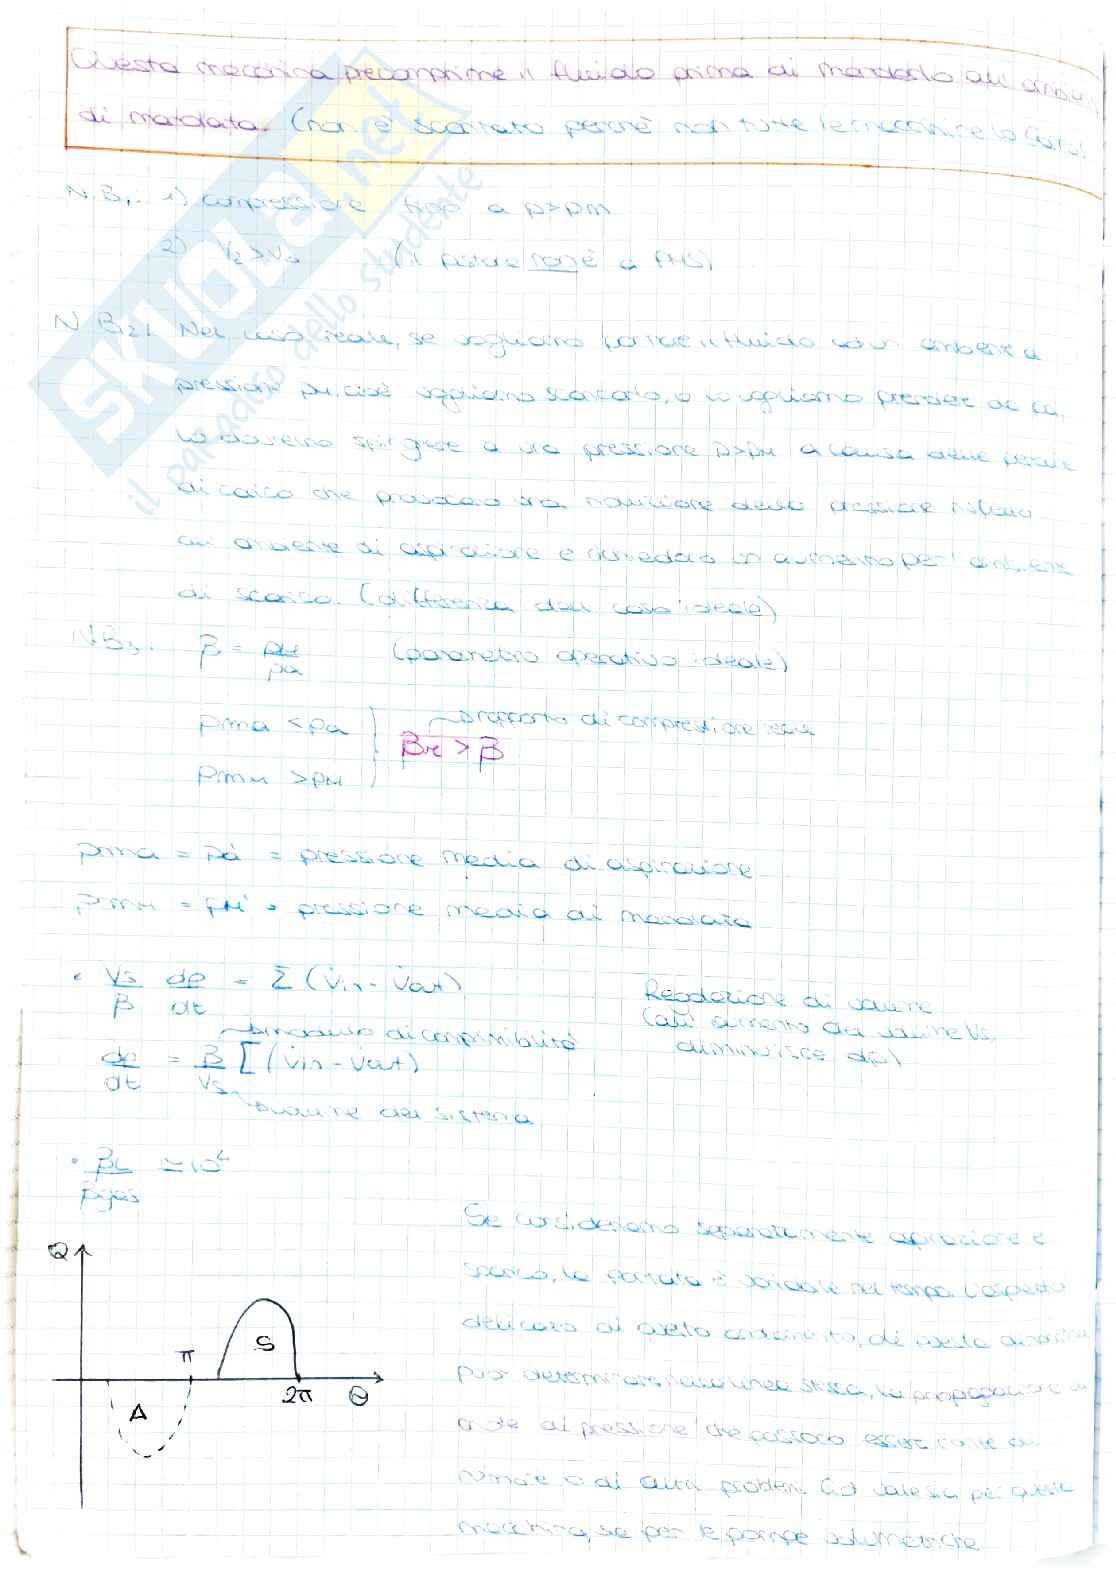 Questa macchina precomprime il fluido prima di mandarlo all'
di mandata. (non è scontato perché non tutte le macchine lo fanno)
N.B1. 1) compressione fino a p>pm
2) V2>Vs (il pistone non è a PMS)
N.B2. Nel caso reale, se vogliamo portare il fluido ad un ambiente a
pressione pM, cioè vogliamo scaricarlo, o lo vogliamo prendere
lo dovremo spingere a una pressione p>pM a causa delle perdite
di carico che provocano una riduzione della pressione rispetto
all'ambiente di aspirazione e richiedono un aumento per l'ambiente
di scarico. (differenza dal caso ideale)
N.B3. β = pM/pa (parametro operativo ideale)
pma < pa
rapporto di compressione reale
βr > β
pmM > pM
pma = pa' = pressione media di aspirazione
pmM = pM' = pressione media di mandata
• Vs/β dp/dt = Σ (V̇in - V̇out)
Regolazione di volume
(all'aumento del volume Vs,
diminuisce dp)
modulo di comprimibilità
dp/dt = β/Vs [(V̇in - V̇out)
volume del sistema
• βL/βgas ≃ 10⁴
Se consideriamo separatamente aspirazione e
scarico, la portata è variabile nel tempo. L'aspetto
delicato di questo andamento, di questa dinamica
può determinare, nella linea stessa, la propagazione di
onde di pressione che possono essere fonte di
rumore o di altri problemi. Ciò vale sia per queste
macchine, sia per le pompe volumetriche
Q
S
π
2π
Θ
A
SKUOLA.net
il paradiso dello studente